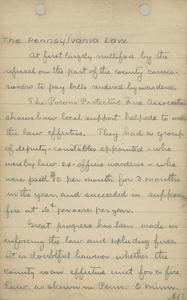 The Pennsylvania Law
At first largely nullified by the
refusal on the part of the county commis-
sioners to pay bills rendered by wardens.
The Pocono Protective Fire Association
shows how local support helped to make
the law effective. They had a group
of deputy-constables appointed - who
were by law ex-officio wardens - who
were paid $ per month for 3 months
in the year, and succeeded in suppressing
fire at per acre per year.
Great progress has been made in
enforcing the law and excluding fires.
It is doubtful however whether the
county is an effective unit for a fire
law, as shown in Penn. & Minn.